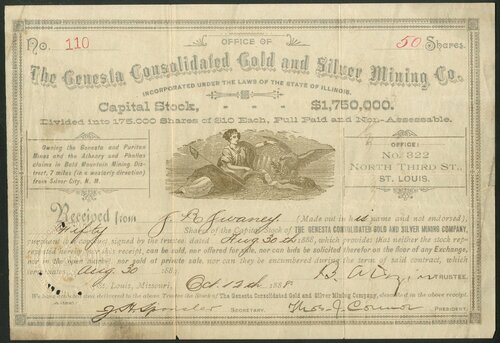 OFFICE OF
No. 110
50 Shares.
The Genesta Consolidated Gold and Silver Mining Co.
INCORPORATED UNDER THE LAWS OF THE STATE OF ILLINOIS.
Capital Stock, - - - $1,750,000.
Divided into 175,000 Shares of $10 Each, Full Paid and Non-Assessable.
Owning the Genesta and Puritan
Mines and the Atheney and Phallas
claims in Bald Mountain Mining Dis-
trict, 7 miles (in a westerly direction)
from Silver City, N. M.
OFFICE:
No. 322
NORTH THIRD ST.,
ST. LOUIS.
Received from J. R. (Made out in name and not endorsed),
Fifty Shares of the Capital Stock of THE GENESTA CONSOLIDATED GOLD AND SILVER MINING COMPANY,
pursuant to a contract signed by the trustee dated Aug 30th 1888, which provides that neither the stock rep-
resented hereby nor this receipt, can be sold, nor offered for sale, nor can bids be solicited therefor on the floor of any Exchange,
nor in the open market, nor sold at private sale, nor can they be encumbered during the term of said contract, which
Aug 30 188
St. Louis, Missouri, Oct. 12th 1888. TRUSTEE.
We have delivered to the above Trustee the Stock of The Genesta Consolidated Gold and Silver Mining Company, described in the above receipt.
SECRETARY. Thos. J. Connor PRESIDENT.